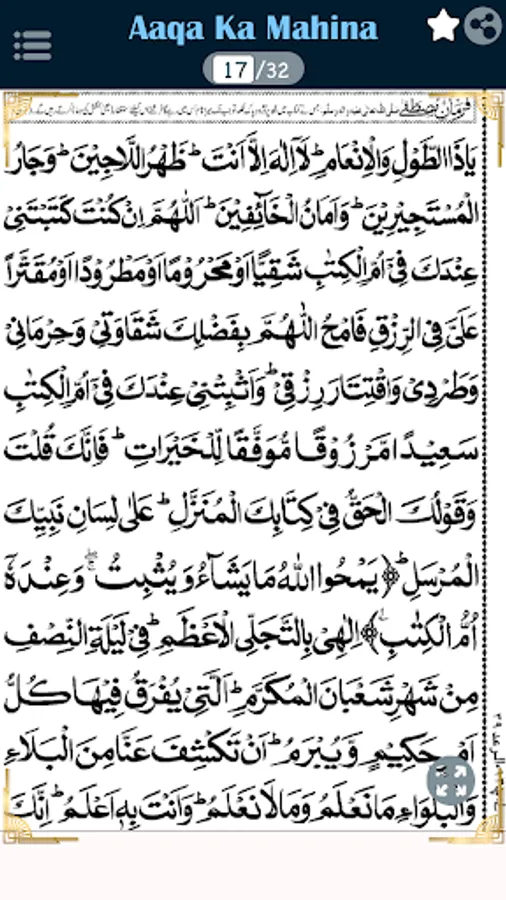 Aaqa Ka Mahina
17/32
فرمانِ مصطفےٰ
یَاذَا الطَّوْلِ وَالْاِنْعَامِ ؕ لَاۤ اِلٰهَ اِلَّاۤ اَنْتَ ؕ ظَهْرُ اللَّاجِیْنَ ؕ وَجَارُ
الْمُسْتَجِیْرِیْنَ ؕ وَاَمَانُ الْخَآئِفِیْنَ ؕ اَللّٰهُمَّ اِنْ كُنْتَ كَتَبْتَنِیْ
عِنْدَكَ فِیْۤ اُمِّ الْكِتٰبِ شَقِیًّا اَوْ مَحْرُوْمًا اَوْ مَطْرُوْدًا اَوْ مُقَتَّرًا
عَلَیَّ فِی الرِّزْقِ فَامْحُ اللّٰهُمَّ بِفَضْلِكَ شَقَاوَتِیْ وَحِرْمَانِیْ
وَطَرْدِیْ وَاقْتِتَارَ رِزْقِیْ ؕ وَاَثْبِتْنِیْ عِنْدَكَ فِیْۤ اُمِّ الْكِتٰبِ
سَعِیْدًا مَّرْزُوْقًا مُّوَفَّقًا لِّلْخَیْرَاتِ ؕ فَاِنَّكَ قُلْتَ
وَقَوْلُكَ الْحَقُّ فِیْ كِتَابِكَ الْمُنَزَّلِ ؕ عَلٰی لِسَانِ نَبِیِّكَ
الْمُرْسَلِ ؕ ﴿یَمْحُوا اللّٰهُ مَا یَشَآءُ وَیُثْبِتُ ۚۖ وَعِنْدَهٗۤ
اُمُّ الْكِتٰبِ﴾ اِلٰهِیْ بِالتَّجَلِّی الْاَعْظَمِ ؕ فِیْ لَیْلَةِ النِّصْفِ
مِنْ شَهْرِ شَعْبَانَ الْمُكَرَّمِ ؕ الَّتِیْ یُفْرَقُ فِیْهَا كُلُّ
اَمْرٍ حَكِیْمٍ وَّیُبْرَمُ ؕ اَنْ تَكْشِفَ عَنَّا مِنَ الْبَلَآءِ
وَالْبَلْوَآءِ مَا نَعْلَمُ وَمَا لَا نَعْلَمُ ؕ وَاَنْتَ بِهٖۤ اَعْلَمُ ؕ اِنَّكَ